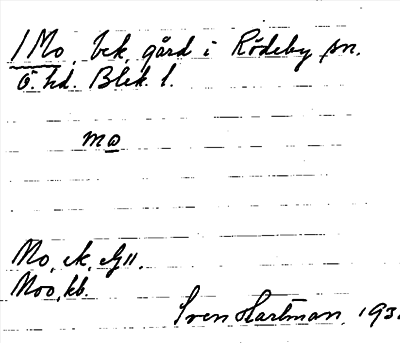 1 Mo, bek. gård i Rödeby sn.
Ö. hd. Blek. l.
mo
Mo, ek, G11.
Moo, kb.
Sven Hartman, 193